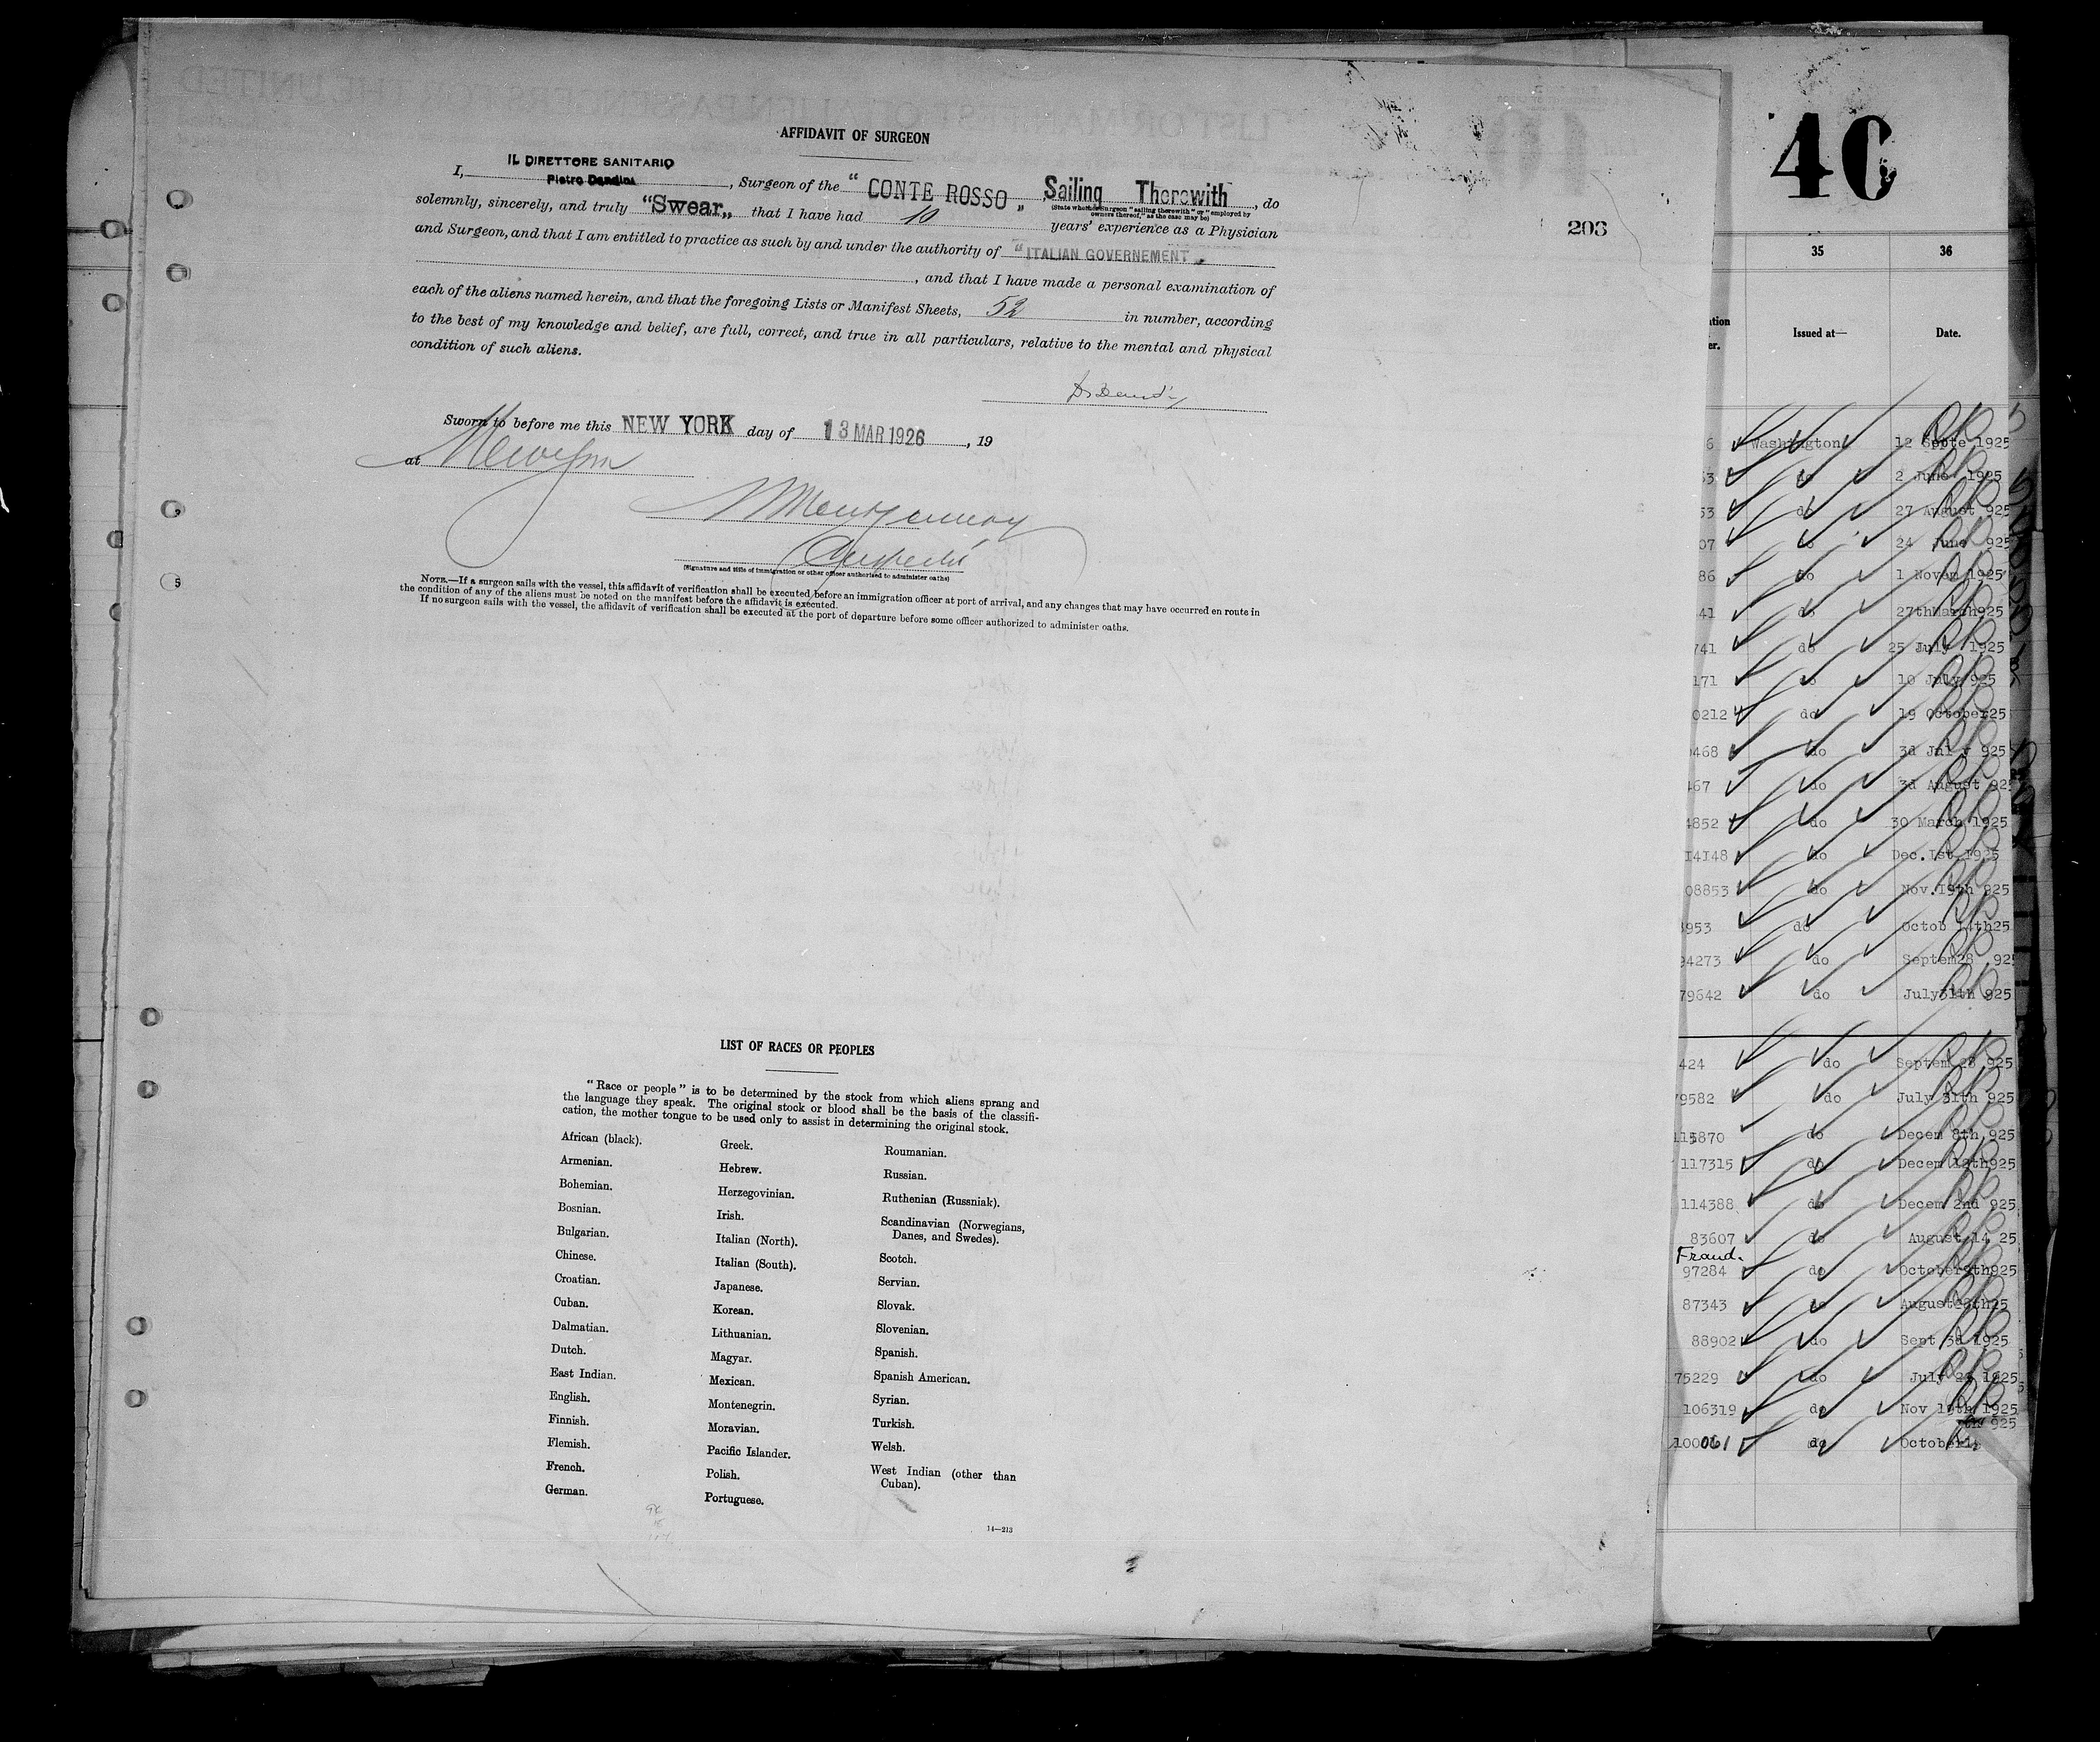 AFFIDAVIT OF SURGEON
IL DIRETTORE SANITARIO
Pietro Dandini
I, , Surgeon of the " CONTE ROSSO „ Sailing Therewith , do
(State whether Surgeon "sailing therewith" or "employed by
owners thereof," as the case may be)
solemnly, sincerely, and truly "Swear„ that I have had 10 years' experience as a Physician
and Surgeon, and that I am entitled to practice as such by and under the authority of "ITALIAN GOVERNEMENT„
, and that I have made a personal examination of
each of the aliens named herein, and that the foregoing Lists or Manifest Sheets, 52 in number, according
to the best of my knowledge and belief, are full, correct, and true in all particulars, relative to the mental and physical
condition of such aliens.
Sworn to before me this NEW YORK day of 13 MAR 1926 , 19
at
(Signature and title of immigration or other officer authorized to administer oaths)
NOTE.—If a surgeon sails with the vessel, this affidavit of verification shall be executed before an immigration officer at port of arrival, and any changes that may have occurred en route in
the condition of any of the aliens must be noted on the manifest before the affidavit is executed.
If no surgeon sails with the vessel, the affidavit of verification shall be executed at the port of departure before some officer authorized to administer oaths.
5
LIST OF RACES OR PEOPLES
"Race or people" is to be determined by the stock from which aliens sprang and
the language they speak. The original stock or blood shall be the basis of the classifi-
cation, the mother tongue to be used only to assist in determining the original stock.
African (black).
Armenian.
Bohemian.
Bosnian.
Bulgarian.
Chinese.
Croatian.
Cuban.
Dalmatian.
Dutch.
East Indian.
English.
Finnish.
Flemish.
French.
German.
Greek.
Hebrew.
Herzegovinian.
Irish.
Italian (North).
Italian (South).
Japanese.
Korean.
Lithuanian.
Magyar.
Mexican.
Montenegrin.
Moravian.
Pacific Islander.
Polish.
Portuguese.
Roumanian.
Russian.
Ruthenian (Russniak).
Scandinavian (Norwegians,
Danes, and Swedes).
Scotch.
Servian.
Slovak.
Slovenian.
Spanish.
Spanish American.
Syrian.
Turkish.
Welsh.
West Indian (other than
Cuban).
14—213
40
203
35 36
Issued at— Date.
6 Washington 12 Septe 1925
53 do 2 June 1925
53 do 27 August 925
07 do 24 June 925
86 do 1 Novem 1925
41 do 27thMarch925
741 do 25 July 1925
171 do 10 July 925
0212 do 19 October25
468 do 3d July 925
467 do 3d August 925
4852 do 30 March 1925
14148 do Dec.1st 1925
08853 do Nov.19th 925
953 do Octob 14th25
94273 do Septem28 925
79642 do July31th 925
424 do Septem 28 925
79582 do July 31th 925
115870 do Decem 8th 925
117315 do Decem 18th925
114388 do Decem 2nd 925
83607 do August 14 25
Fraud.
97284 do October9th925
87343 do August28th25
88902 do Sept 3d 1925
75229 do July 23 1925
106319 do Nov 10th 1925
100061 do October